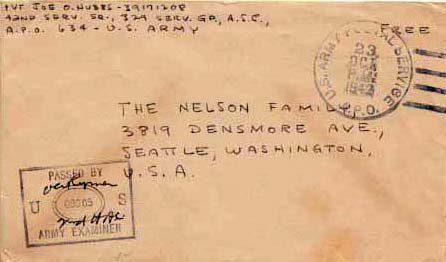 PVT JOE O. HUBBS - 39171208
42ND SERV. SQ., 329 SERV. GP., A.S.C.,
A.P.O. 634 - U.S. ARMY
FREE
U.S. ARMY POSTAL SERVICE
23
1942
A.P.O.
THE NELSON FAMILY,
3819 DENSMORE AVE.,
SEATTLE, WASHINGTON,
U.S.A.
PASSED BY
U S
ARMY EXAMINER